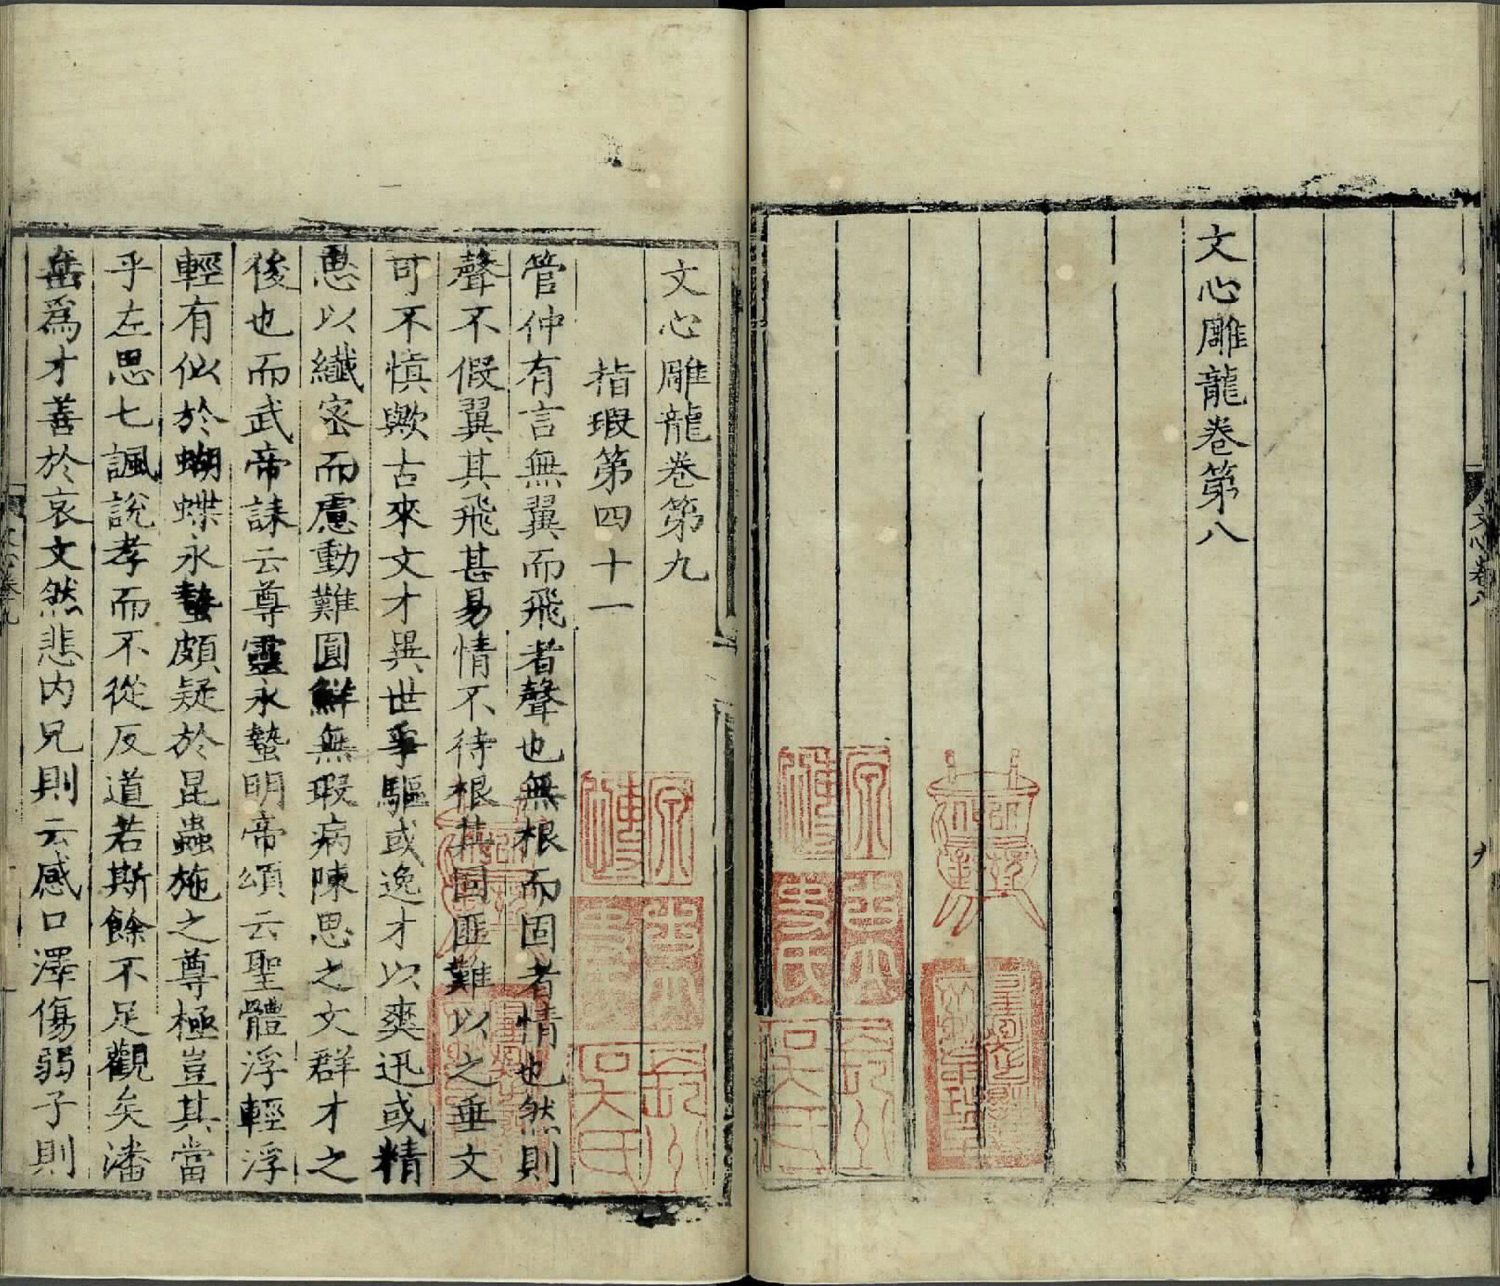 文心雕龍卷第八
文心卷八
九
文心雕龍卷第九
指瑕第四十一
管仲有言無翼而飛者聲也無根而固者情也然則
聲不假翼其飛甚易情不待根其固匪難以之垂文
可不慎歟古來文才異世爭驅或逸才以爽迅或精
思以纖密而慮動難圓鮮無瑕病陳思之文群才之
後也而武帝誄云尊靈永蟄明帝頌云聖體浮輕浮
輕有似於蝴蝶永蟄頗疑於昆蟲施之尊極豈其當
乎左思七諷說孝而不從反道若斯餘不足觀矣潘
岳爲才善於哀文然悲内兄則云感口澤傷弱子則
文心卷九